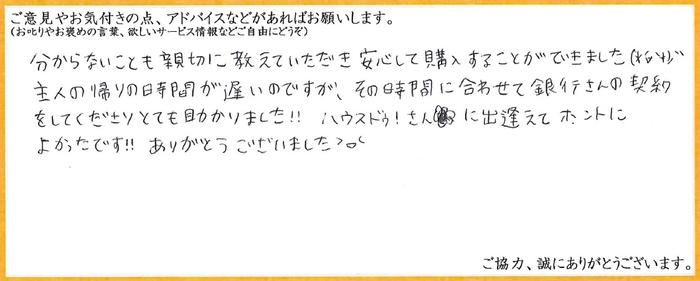 ご意見やお気付きの点、アドバイスなどがあればお願いします。
(お叱りやお褒めの言葉、欲しいサービス情報などご自由にどうぞ)
分からないことも親切に教えていただき安心して購入することができました(^o^)
主人の帰りの時間が遅いのですが、その時間に合わせて銀行さんの契約
をしてくださりとても助かりました!! ハウスドゥ!さんに出逢えてホントに
よかったです!! ありがとうございました
ご協力、誠にありがとうございます。